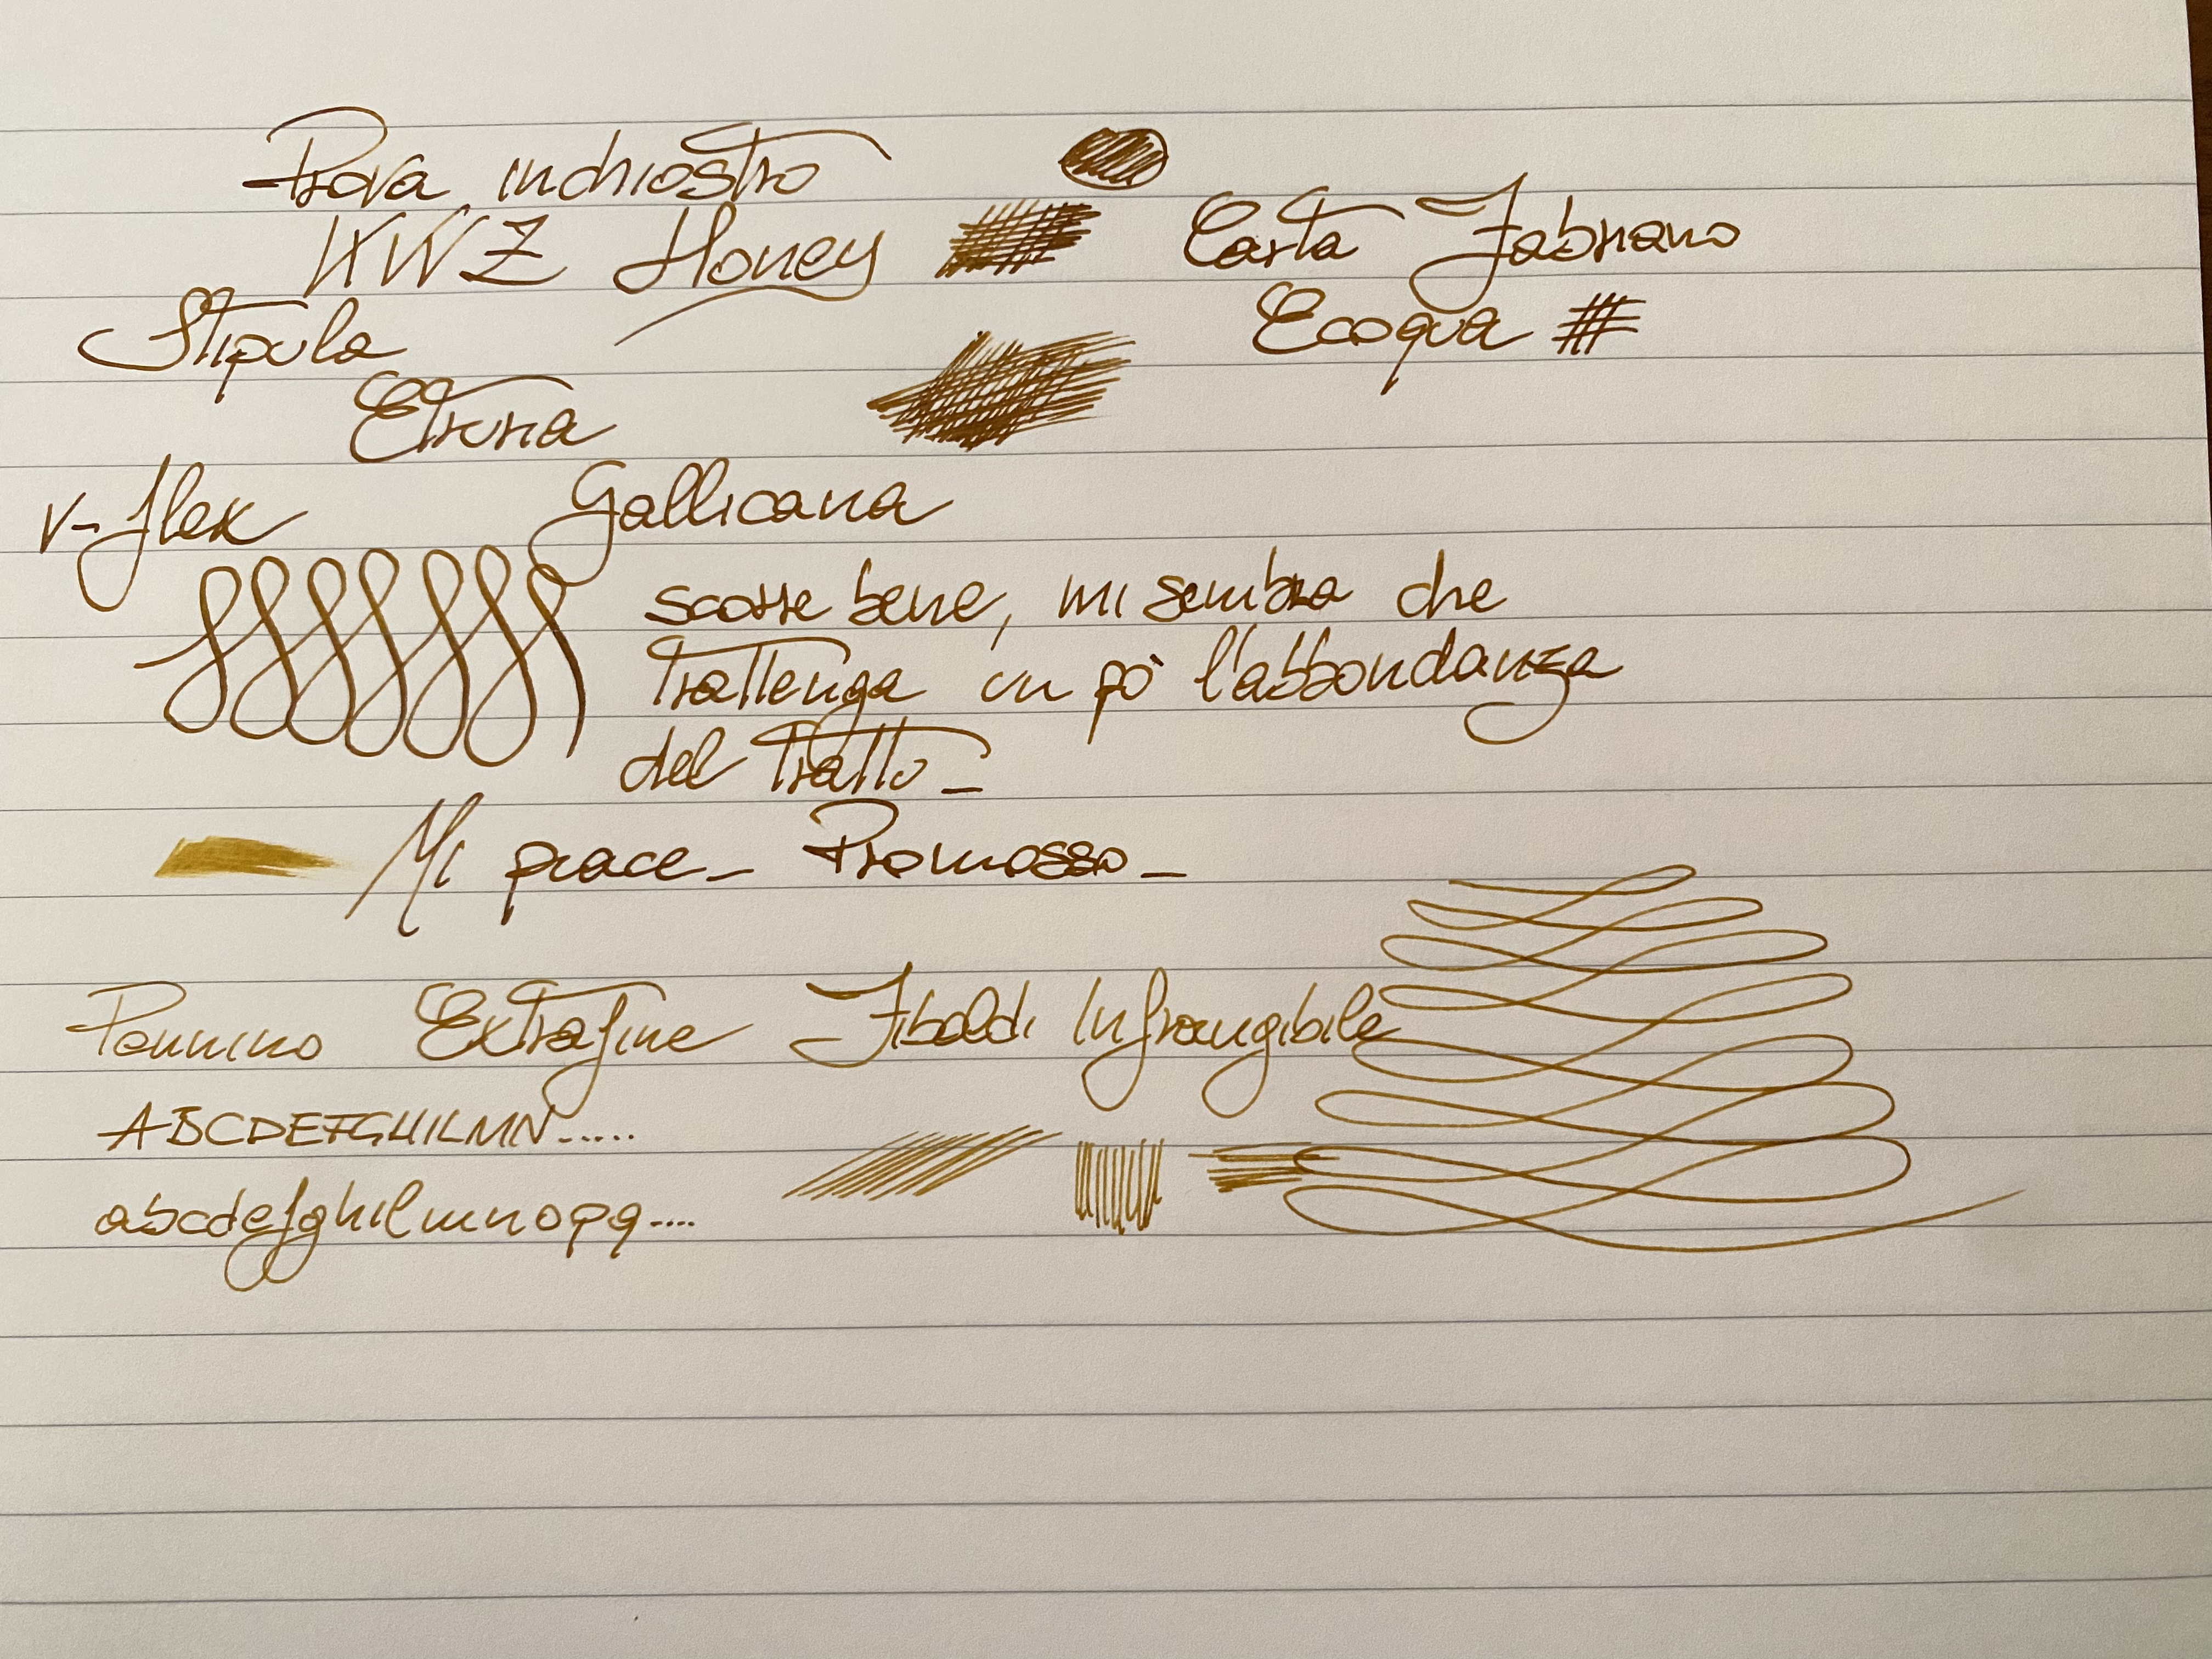 Prova inchiostro
KWZ Honey
Carta Fabriano
Ecoqua
Stipula
Etruria
V-flex Gallicana
scorre bene, mi sembra che
trattenga un pò l'abbondanza
del tratto_
Mi piace_ Promosso_
Pennino Extrafine Tibaldi Infrangibile
ABCDEFGHILMN.....
abcdefghilmnopq....